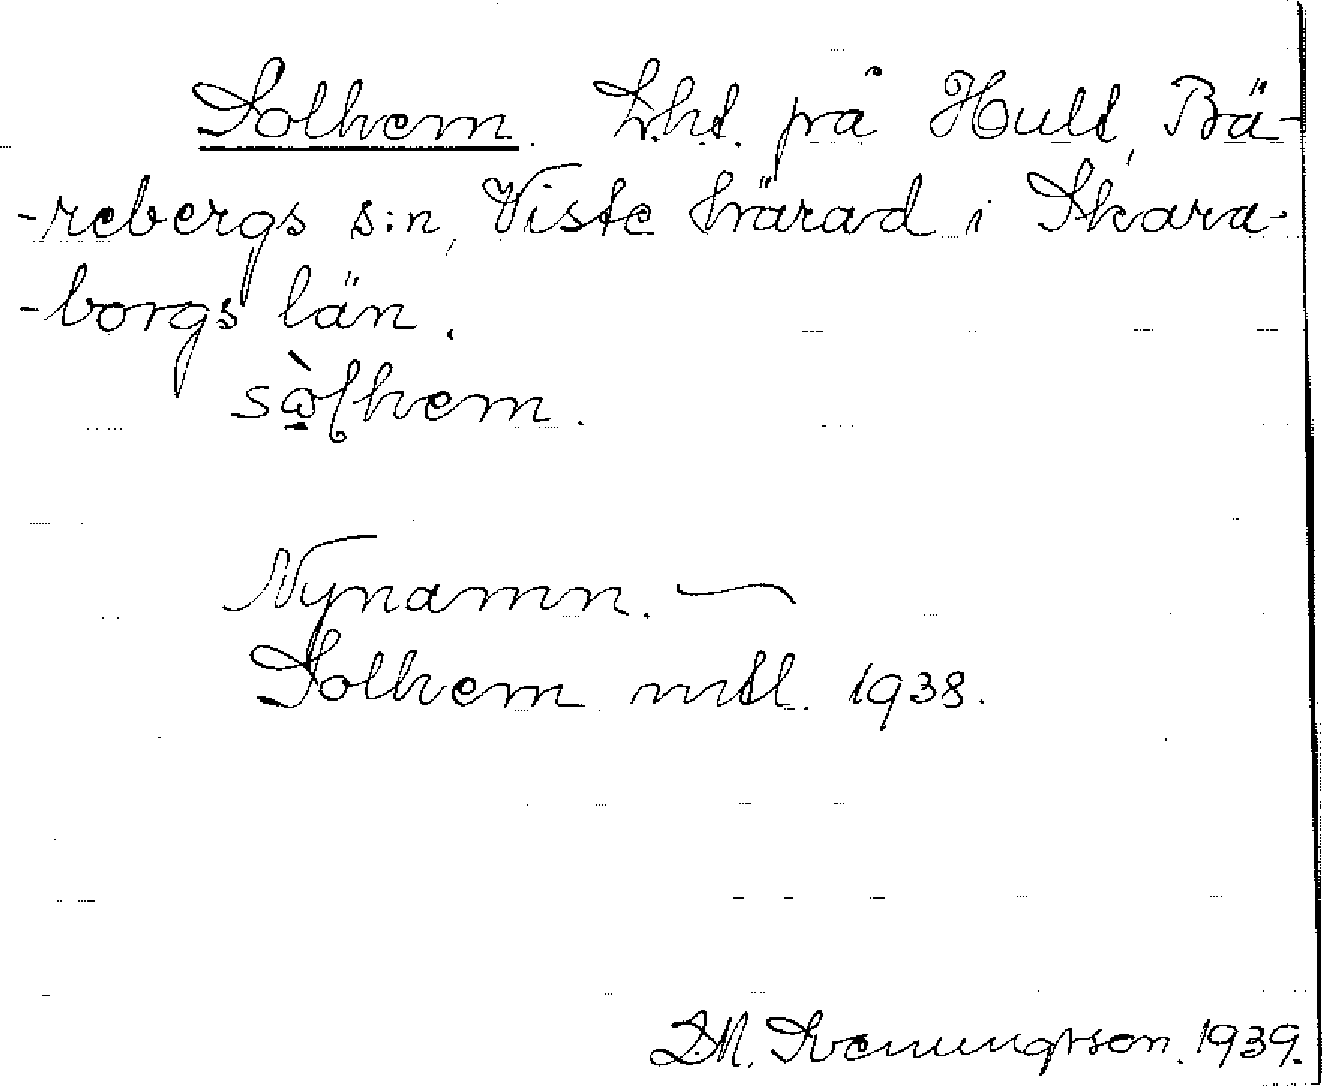 Solhem. Lht. på Hult, Bä-
-rebergs s:n, Viste härad i Skara-
-borgs län.
sòlhem.
Nynamn. —
Solhem mtl. 1938.
D.M. Svenungsson. 1939.